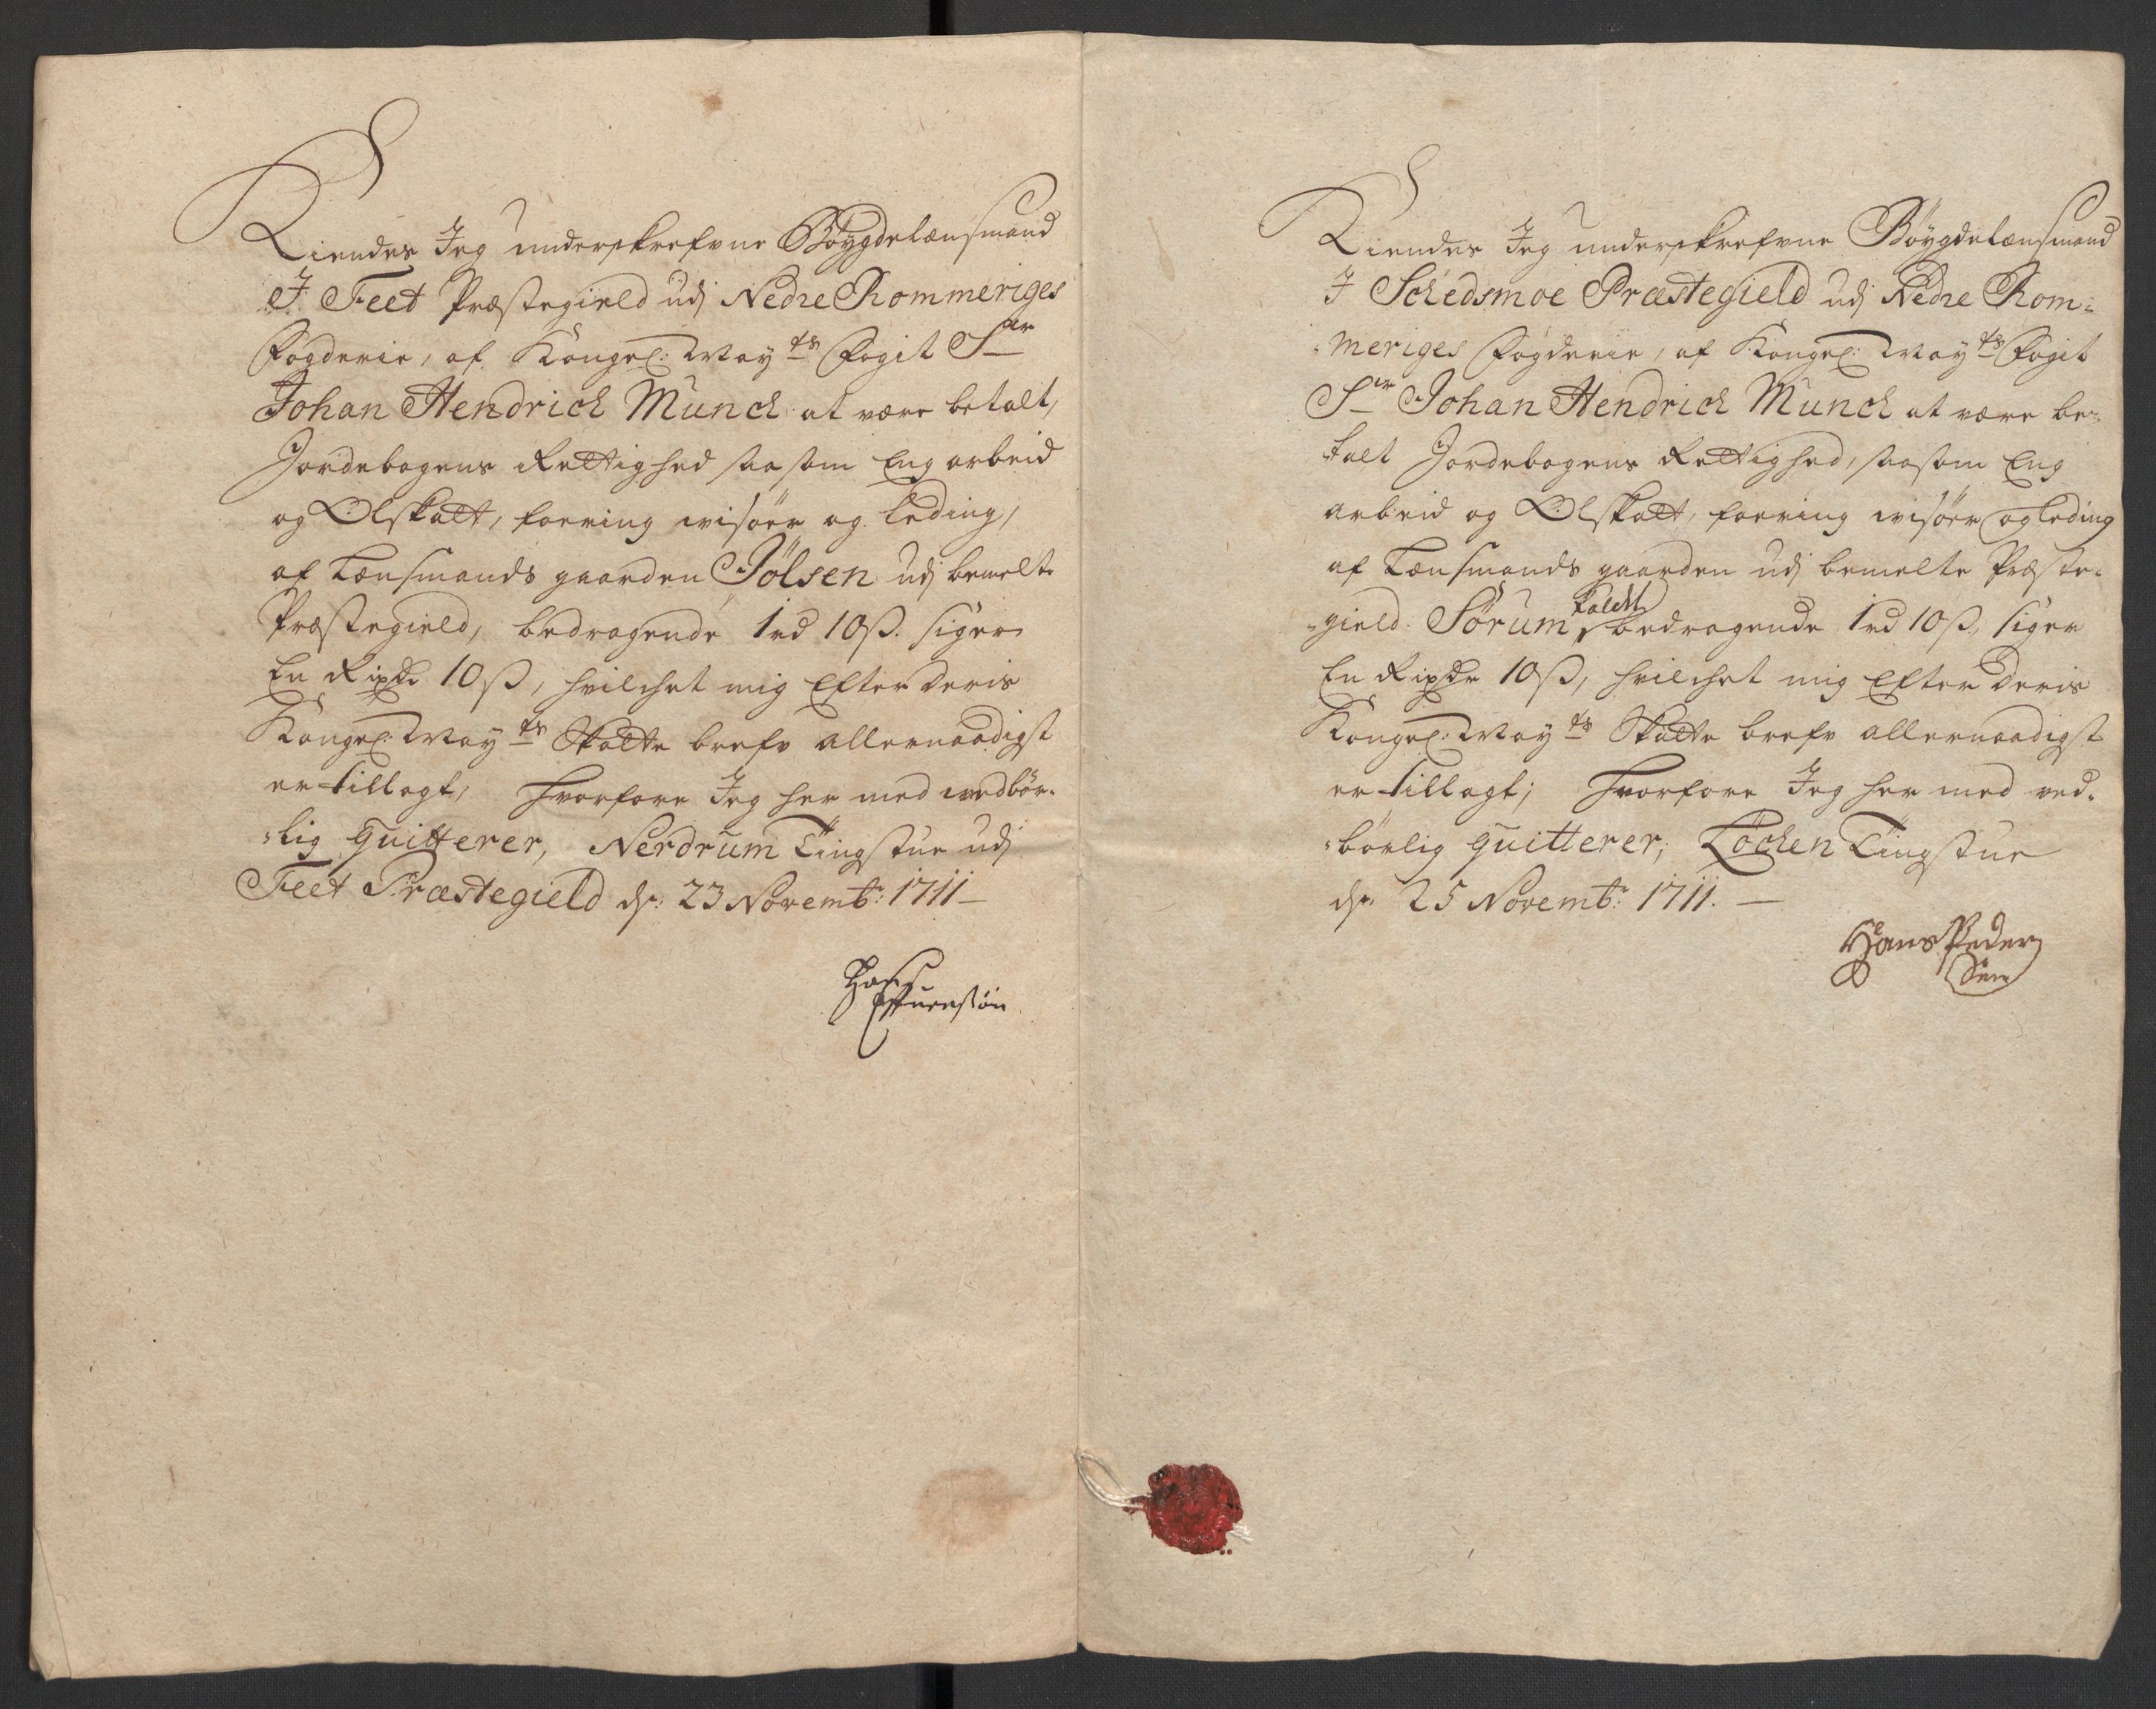 Kiendes Jeg underskrefvne Böygdelensmand
J Feet Præstegield udj Nedre Rommeriges
Fogderie, af Kongel: May ts Fogit Sr
Johan Hendrich Munch at være betalt,
Jordebogens Rettighed saasom Eng arbeid
og Olskatt, foering wisöer og Leding,
af Lensmands gaarden Jölsen udj bemelte
Præstegield, bedragende 1rd 10ß. siger
En Rixdr 10ß, hvilchet mig Efter deris
Kongel: May ts Skatte brefv allernaadigst
er tillagt, Hvorfore Jeg her med wedbör-
-lig quitterer, Nerdrum Tingstue udj
Feet Præstegield dn: 23 Novembr: 1711
Hans
Kiendes Jeg underskrefvne Böygdelensmand
J Schedsmoe Præstegield udj Nedre Rom-
-meriges Fogderie, af Kongel: May ts Fogit
Sr Johan Hendrich Munch at være be-
talt Jordebogens Rettighed, saasom Eng
arbeid og Olskatt, foering wisöer og Leding
af Lensmands gaarden udj bemelte Præste-
-gield Sörum kaldet bedragende 1rd 10ß, siger
En Rixdr 10ß, hvilchet mig Efter deris
Kongel: May ts Skatte brefv allernaadigst
er tillagt; Hvorfore Jeg her med ved-
-börlig quitterer, Löchen Tingstue
dn 25 Novembr: 1711.
Hans Peder
Sen